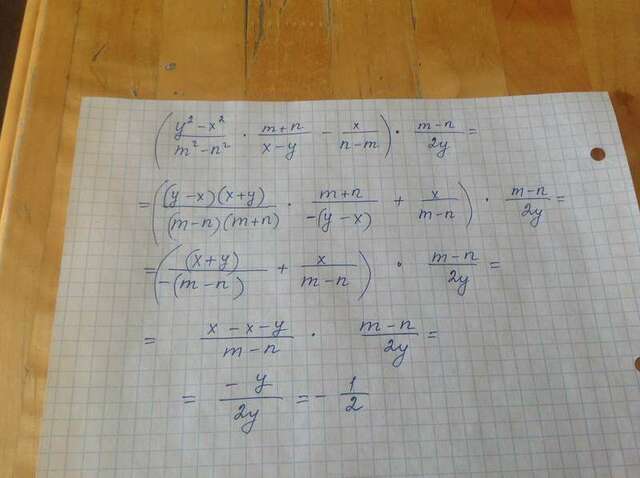 ( (y² - x²)/(m² - n²) · (m+n)/(x-y) - x/(n-m) ) · (m-n)/(2y) =
= ( ((y-x)(x+y))/((m-n)(m+n)) · (m+n)/(-(y-x)) + x/(m-n) ) · (m-n)/(2y) =
= ( (x+y)/(-(m-n)) + x/(m-n) ) · (m-n)/(2y) =
= (x-x-y)/(m-n) · (m-n)/(2y) =
= (-y)/(2y) = - 1/2